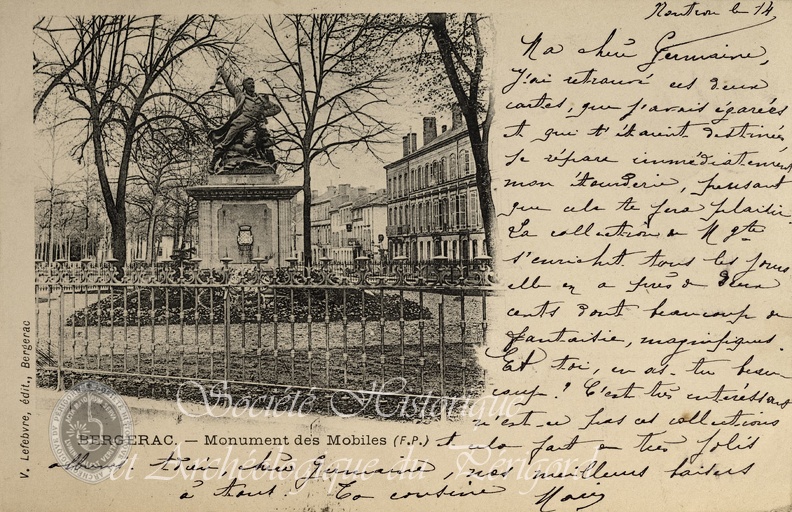 Nontron le 14
Ma chère Germaine,
J'ai retrouvé ces deux
cartes, que j'avais égarées
et qui t'étaient destinées
Je répare immédiatement
mon étourderie, pensant
que cela te fera plaisir.
La collection de Mgte
s'enrichit tous les jours
elle en a près de deux
cents dont beaucoup de
fantaisie, magnifiques.
Et toi, en as-tu beau
coup? C'est très intéressant
n'est-ce pas ces collections
et cela fait de très jolis
albums. chère Germaine, nos meilleurs baisers
à tous. Ta cousine Mary
V. Lefebvre, édit., Bergerac
BERGERAC. — Monument des Mobiles (F.P.)
Société Historique
et Archéologique du Périgord